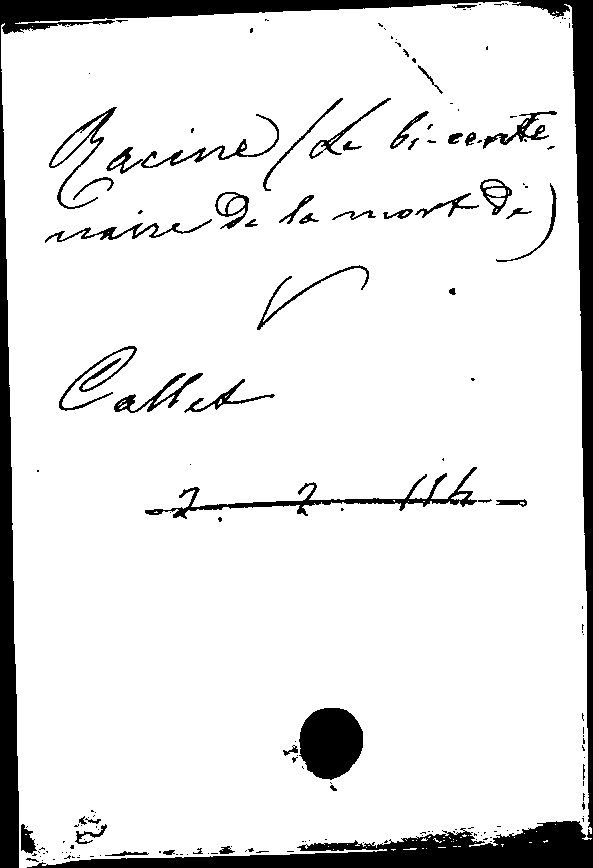 Racine (Le bi-cente-
naire de la mort de)
V
Callet
2. 2. 114